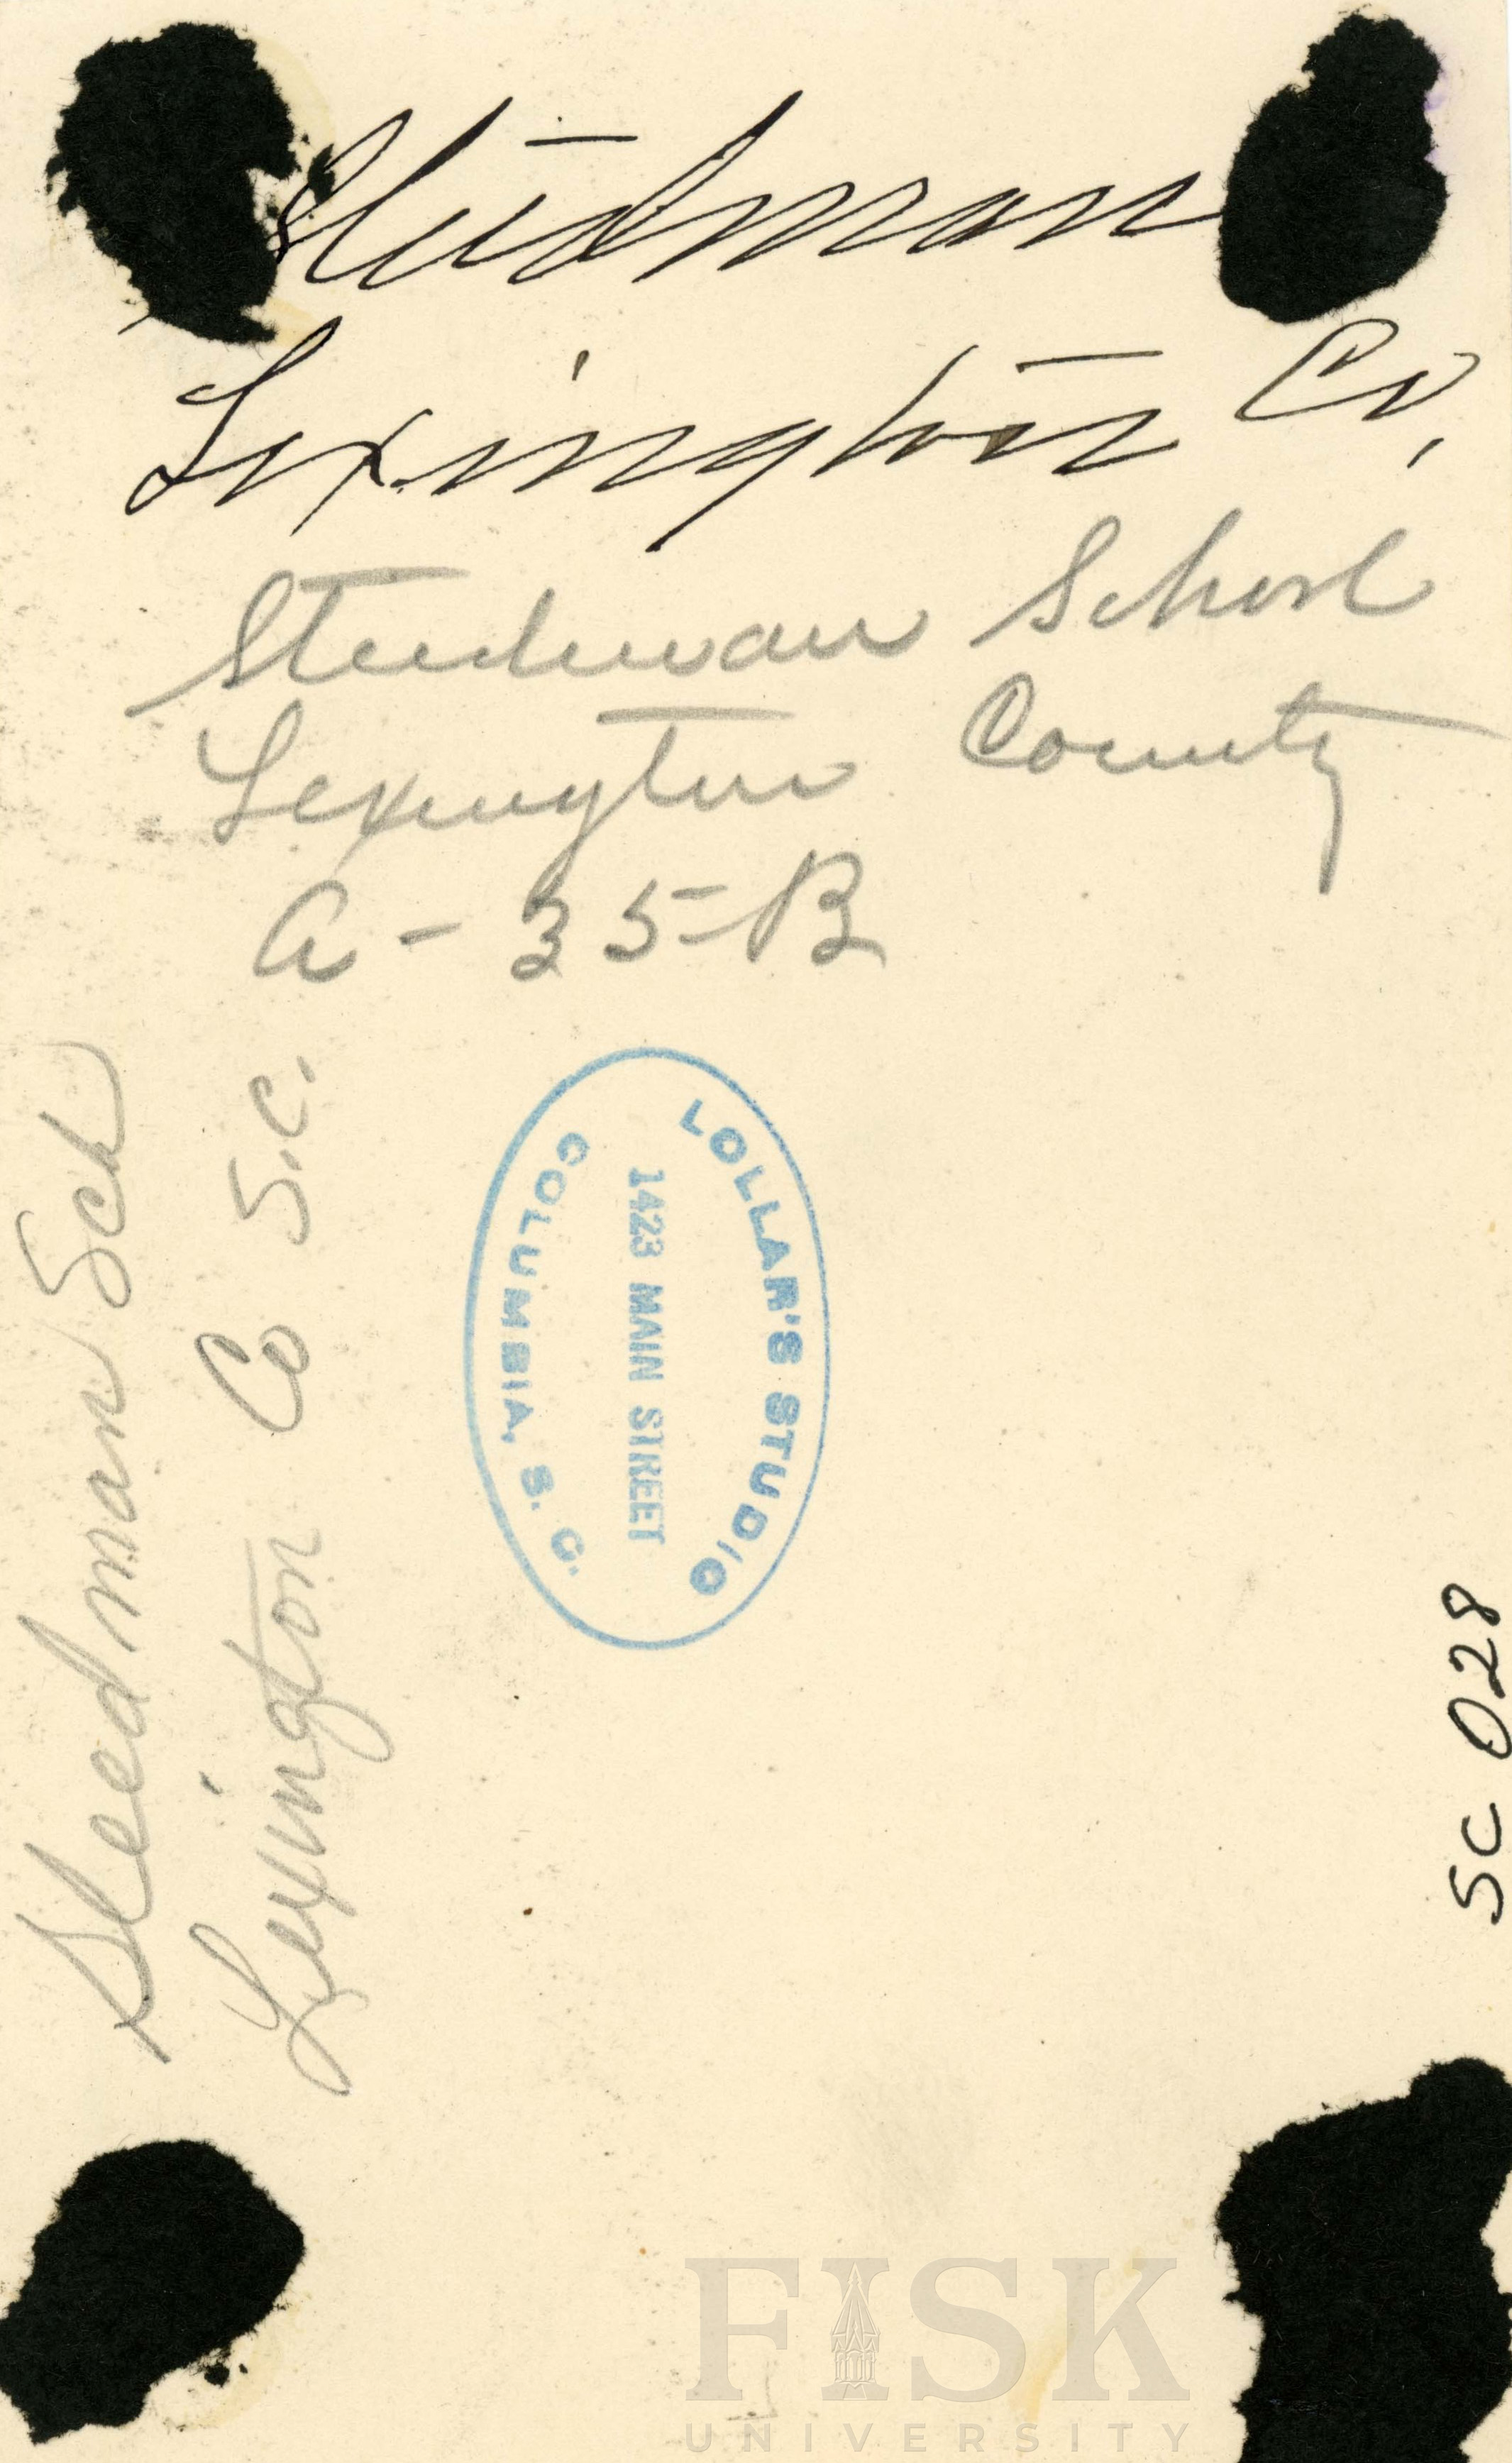 Steedman
Lexington Co.
Steedman School
Lexington County
A-35-B
Steedman Sch
Lexington Co S.C.
LOLLAR'S STUDIO
1423 MAIN STREET
COLUMBIA, S. C.
SC 028
FISK
UNIVERSITY